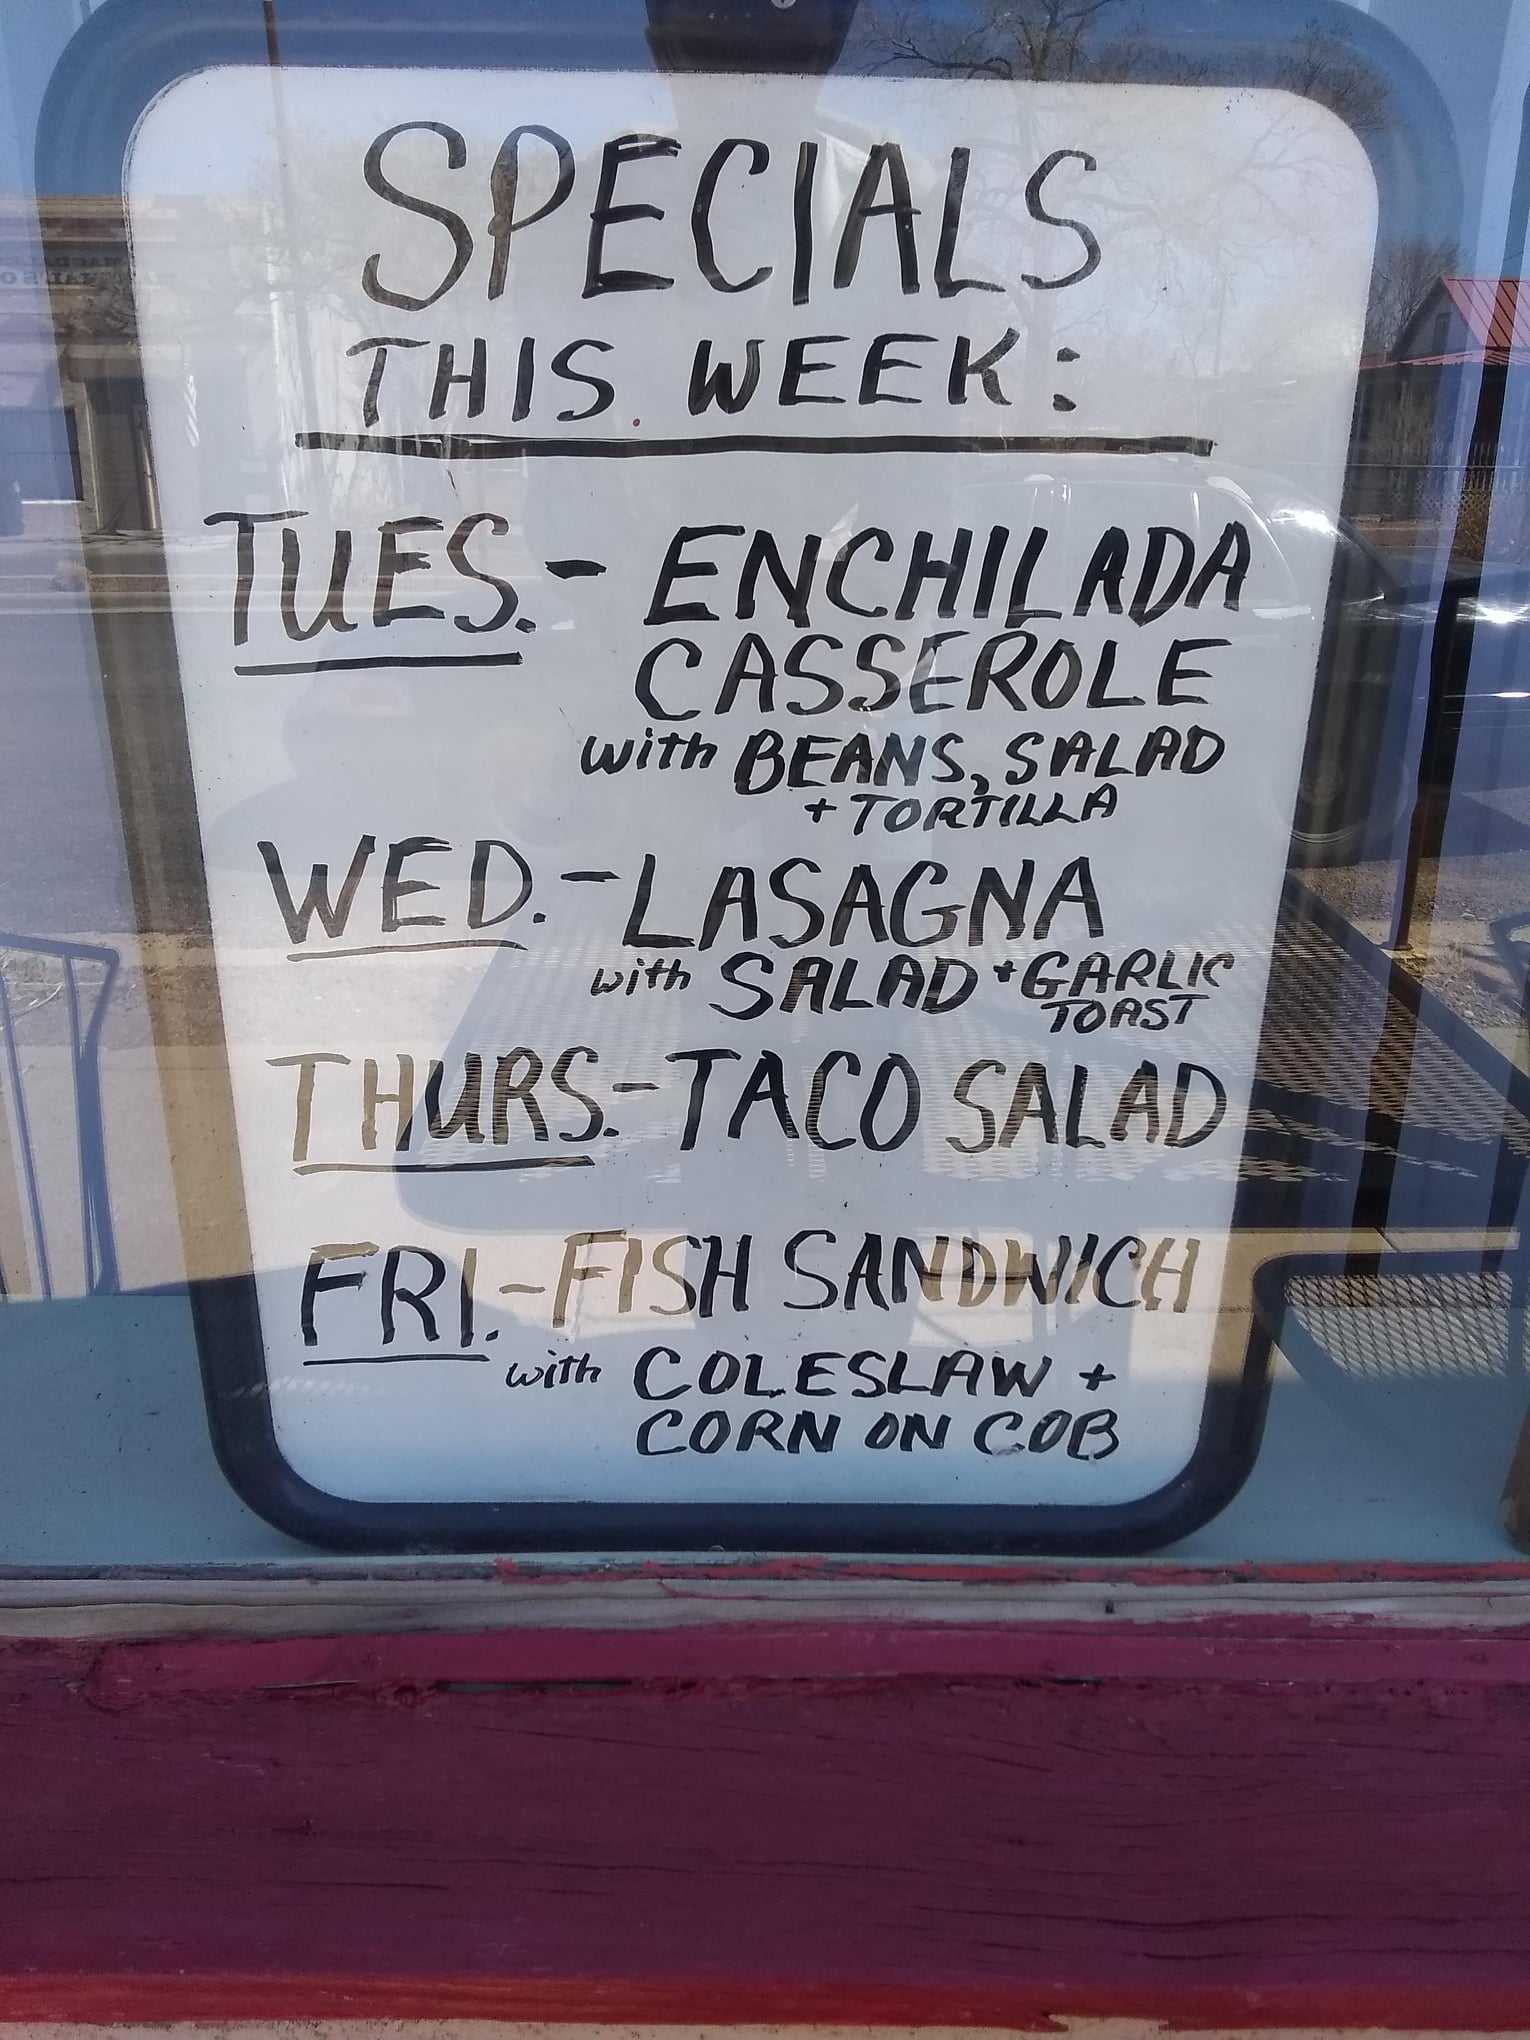 SPECIALS
THIS WEEK:
TUES. - ENCHILADA
CASSEROLE
with BEANS, SALAD
+ TORTILLA
WED. - LASAGNA
with SALAD + GARLIC
TOAST
THURS. - TACO SALAD
FRI. - FISH SANDWICH
with COLESLAW +
CORN ON COB